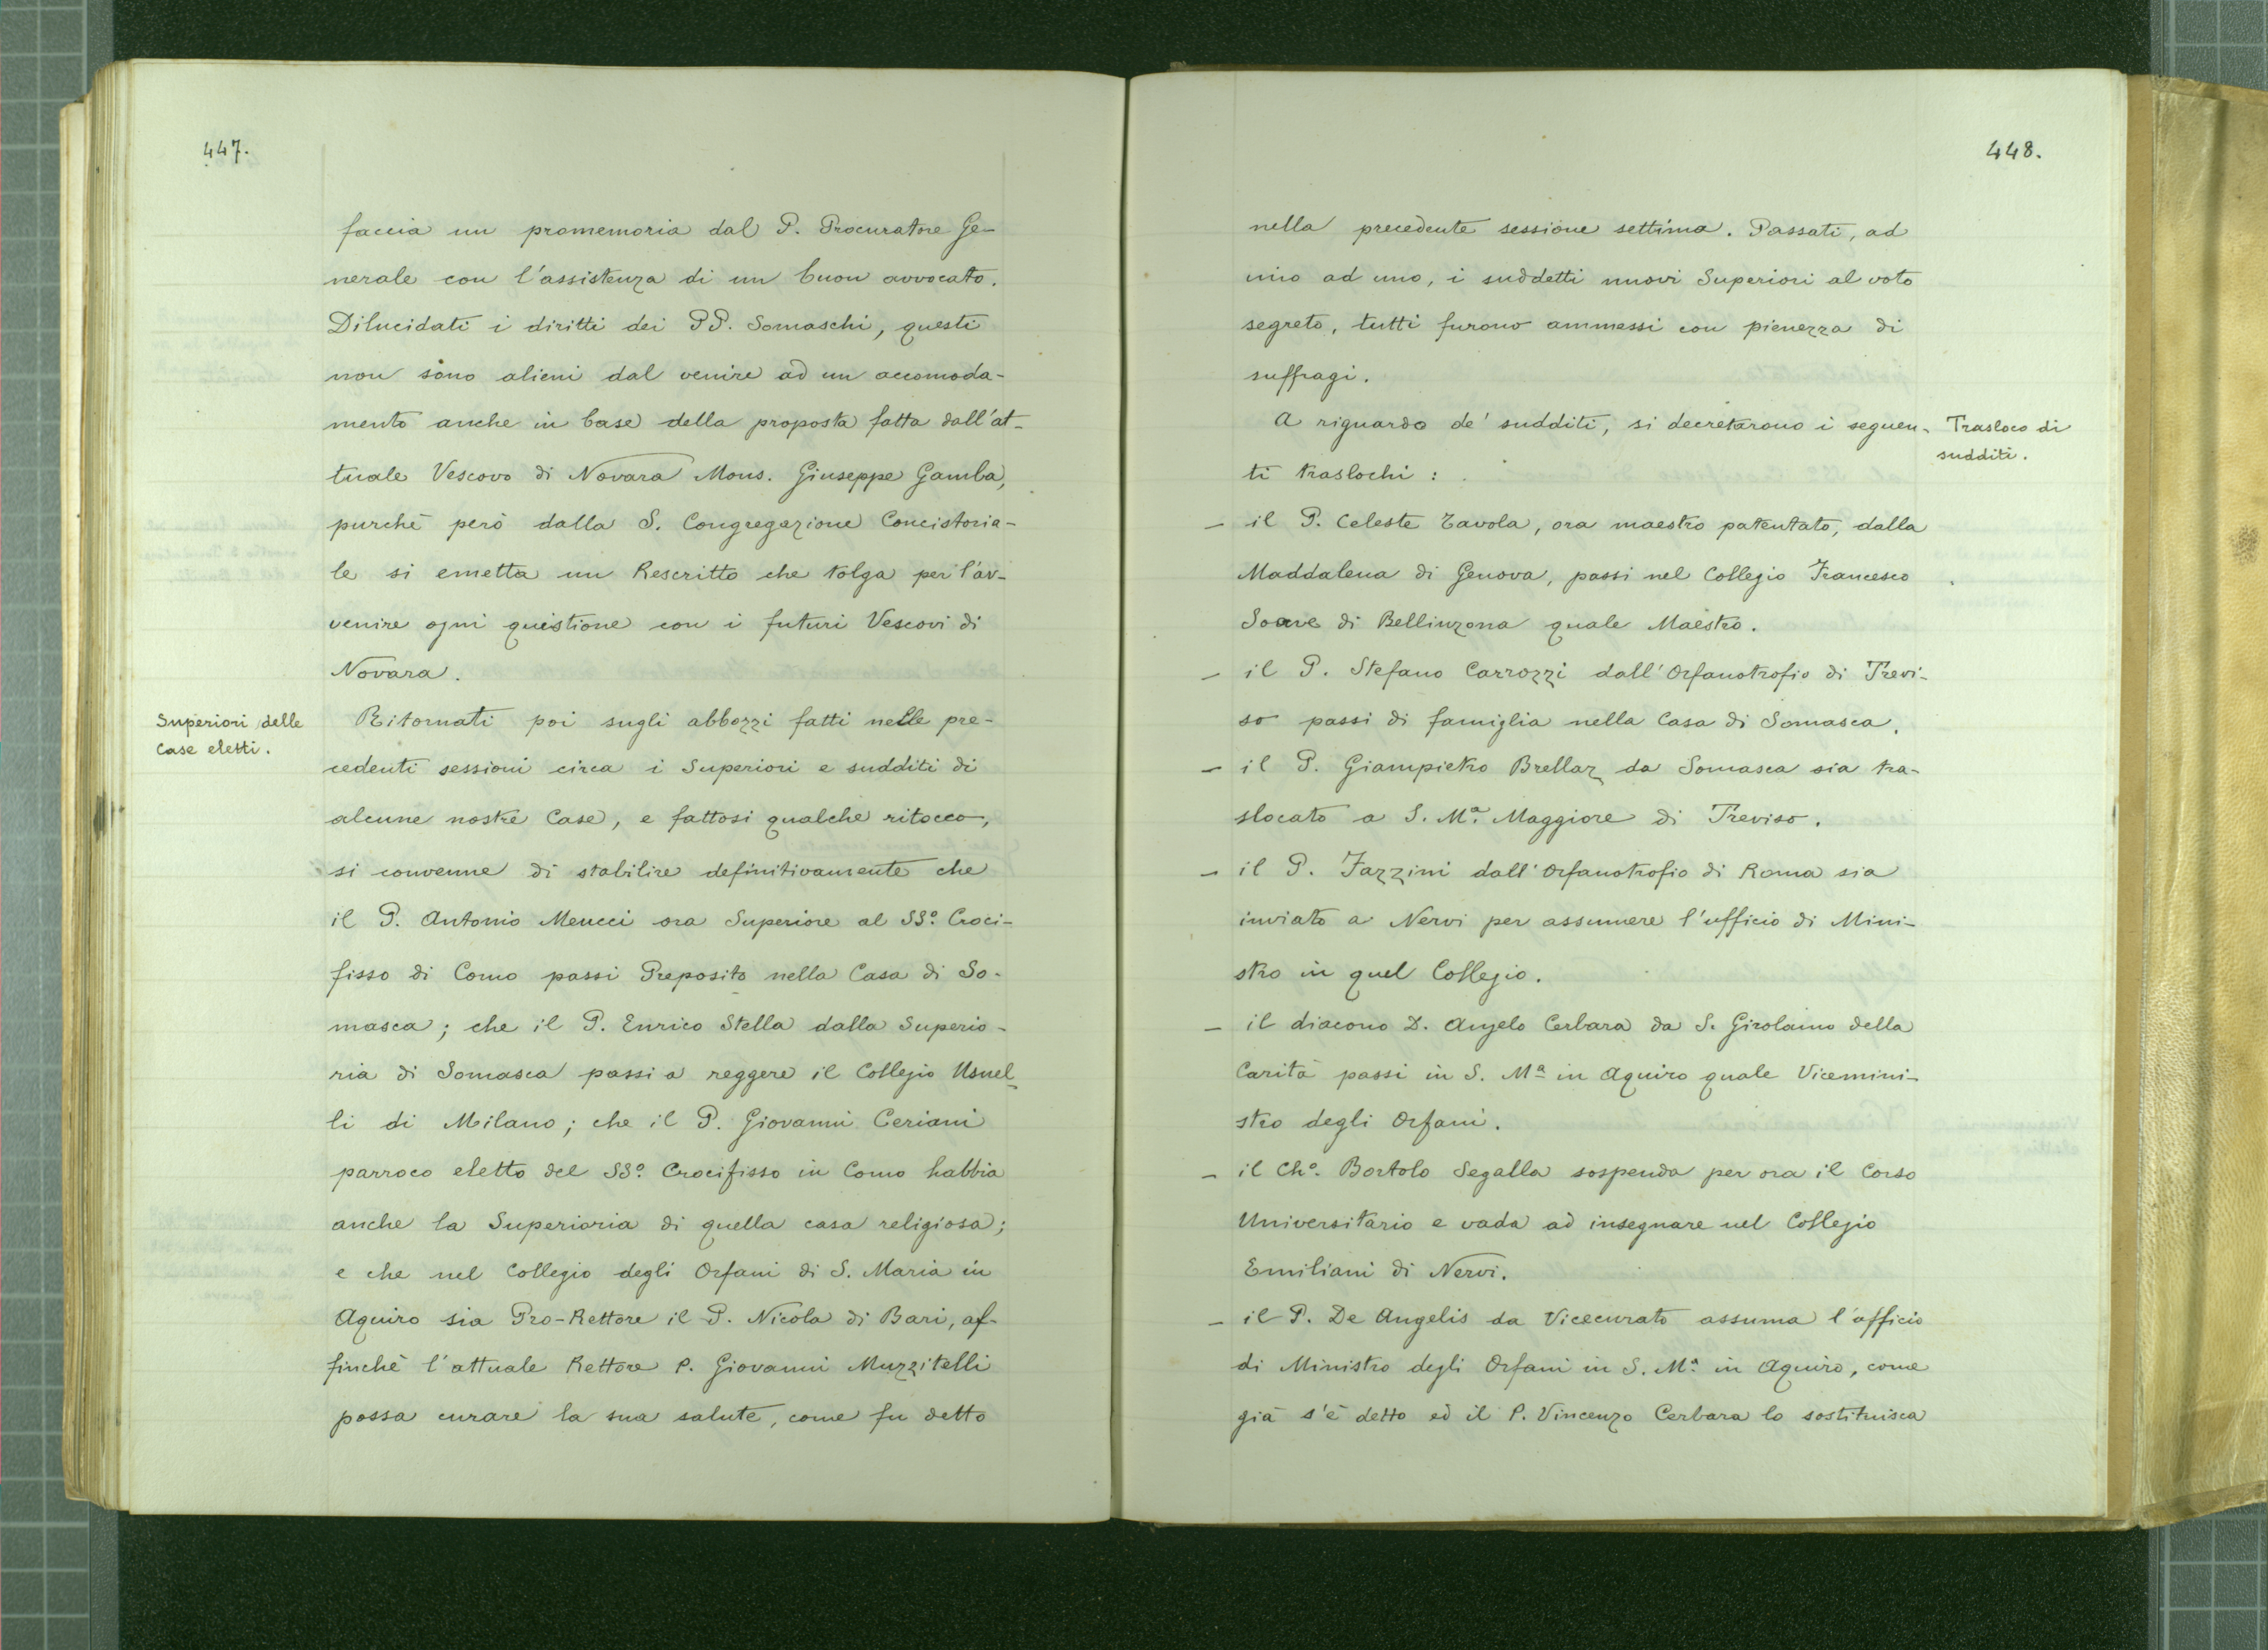 447.
faccia un promemoria dal P. Procuratore Ge-
nerale con l'assistenza di un buon avvocato.
Dilucidati i diritti dei PP. Somaschi, questi
non sono alieni dal venire ad un accomoda-
mento anche in base della proposta fatta dall'at-
tuale Vescovo di Novara Mons. Giuseppe Gamba,
purchè però dalla S. Congregazione Concistoria-
le si emetta un Rescritto che tolga per l'av-
venire ogni questione con i futuri Vescovi di
Novara.
Superiori delle
Case eletti.
Ritornati poi sugli abbozzi fatti nelle pre-
cedenti sessioni circa i Superiori e sudditi di
alcune nostre Case, e fattosi qualche ritocco,
si convenne di stabilire definitivamente che
il P. Antonio Meucci ora Superiore al SSº. Croci-
fisso di Como passi Preposito nella Casa di So-
masca; che il P. Enrico Stella dalla Superio-
ria di Somasca passi a reggere il Collegio Usuel-
li di Milano; che il P. Giovanni Ceriani
parroco eletto del SSº. Crocifisso in Como habbia
anche la Superioria di quella casa religiosa;
e che nel Collegio degli Orfani di S. Maria in
Aquiro sia Pro-Rettore il P. Nicola di Bari, af-
finchè l'attuale Rettore P. Giovanni Muzzitelli
possa curare la sua salute, come fu detto
448.
nella precedente sessione settima. Passati, ad
uno ad uno, i suddetti nuovi Superiori al voto
segreto, tutti furono ammessi con pienezza di
suffragi.
A riguardo de' sudditi, si decretarono i seguen-
ti traslochi:
Trasloco di
sudditi.
- il P. Celeste Tavola, ora maestro patentato, dalla
Maddalena di Genova, passi nel Collegio Francesco
Soave di Bellinzona quale Maestro.
- il P. Stefano Carrozzi dall'Orfanotrofio di Trevi-
so passi di famiglia nella Casa di Somasca.
- il P. Giampietro Brellaz da Somasca sia tra-
slocato a S. Mª. Maggiore di Treviso.
- il P. Fazzini dall'Orfanotrofio di Roma sia
inviato a Nervi per assumere l'ufficio di Mini-
stro in quel Collegio.
- il diacono D. Angelo Cerbara da S. Girolamo della
Carità passi in S. Mª in Aquiro quale Vicemini-
stro degli Orfani.
- il Chº. Bortolo Segalla sospenda per ora il Corso
Universitario e vada ad insegnare nel Collegio
Emiliani di Nervi.
- il P. De Angelis da Vicecurato assuma l'officio
di Ministro degli Orfani in S. Mª. in Aquiro, come
già s'è detto ed il P. Vincenzo Cerbara lo sostituisca